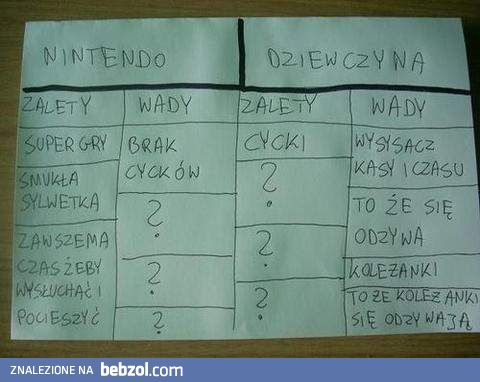 NINTENDO
DZIEWCZYNA
ZALETY
WADY
ZALETY
WADY
SUPER GRY
SMUKŁA
SYLWETKA
ZAWSZE MA
CZAS ŻEBY
WYSŁUCHAĆ I
POCIESZYĆ
BRAK
CYCKÓW
?
?
?
CYCKI
?
?
?
WYSYSACZ
KASY I CZASU
TO ŻE SIĘ
ODZYWA
KOLEŻANKI
TO ŻE KOLEŻANKI
SIĘ ODZYWAJĄ
ZNALEZIONE NA bebzol.com